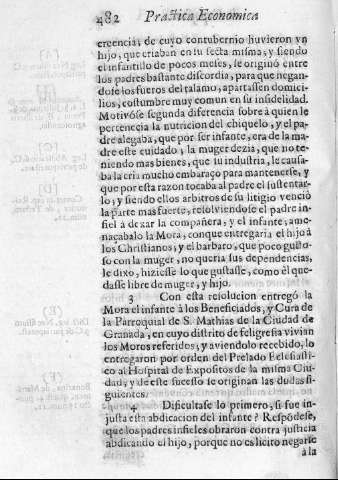 482 Practica Economica
creencia, de cuyo contubernio huvieron vn
hijo, que criaban en su secta misma, y siendo
el infantillo de pocos meses, se originó entre
los padres bastante discordia, para que negan-
dose los fueros del talamo, apartassen domici-
lios, costumbre muy comun en su infidelidad.
Motivóse segunda diferencia sobre à quien le
pertenecia la nutricion del chiquelo, y el pa-
dre alegaba, que por ser infante, era de la ma-
dre este cuidado; la muger dezia, que no te-
niendo mas bienes, que su industria, le causa-
ba la cria mucho embaraço para mantenerse, y
que por esta razon tocaba al padre el sustentar-
lo, y siendo ellos arbitros de su litigio venció
la parte mas fuerte, resolviendose el padre in-
fiel à dexar la compañera, y el infante, ame-
naçabalo la Mora, conque entregaria el hijo à
los Christianos, y el barbaro, que poco gusto-
so con la muger, no queria sus dependencias,
le dixo, hiziesse lo que gustasse, como èl que-
dasse libre de muger, y hijo.
3 Con esta resolucion entregó la
Mora el infante à los Beneficiados, y Cura de
la Parroquial de S. Mathias de la Ciudad de
Granada, en cuyo distrito de feligresia vivian
los Moros referidos, y aviendolo recebido, lo
entregaron por orden del Prelado Eclesiasti-
co al Hospital de Expositos de la misma Ciu-
dad, y de este sucesso se originan las dudas si-
guientes.
4 Dificultase lo primero, si fue in-
justa esta abdicacion del infante? Respõdese,
que los padres infieles obraron contra justicia
abdicando el hijo, porque no es licito negarle
à la